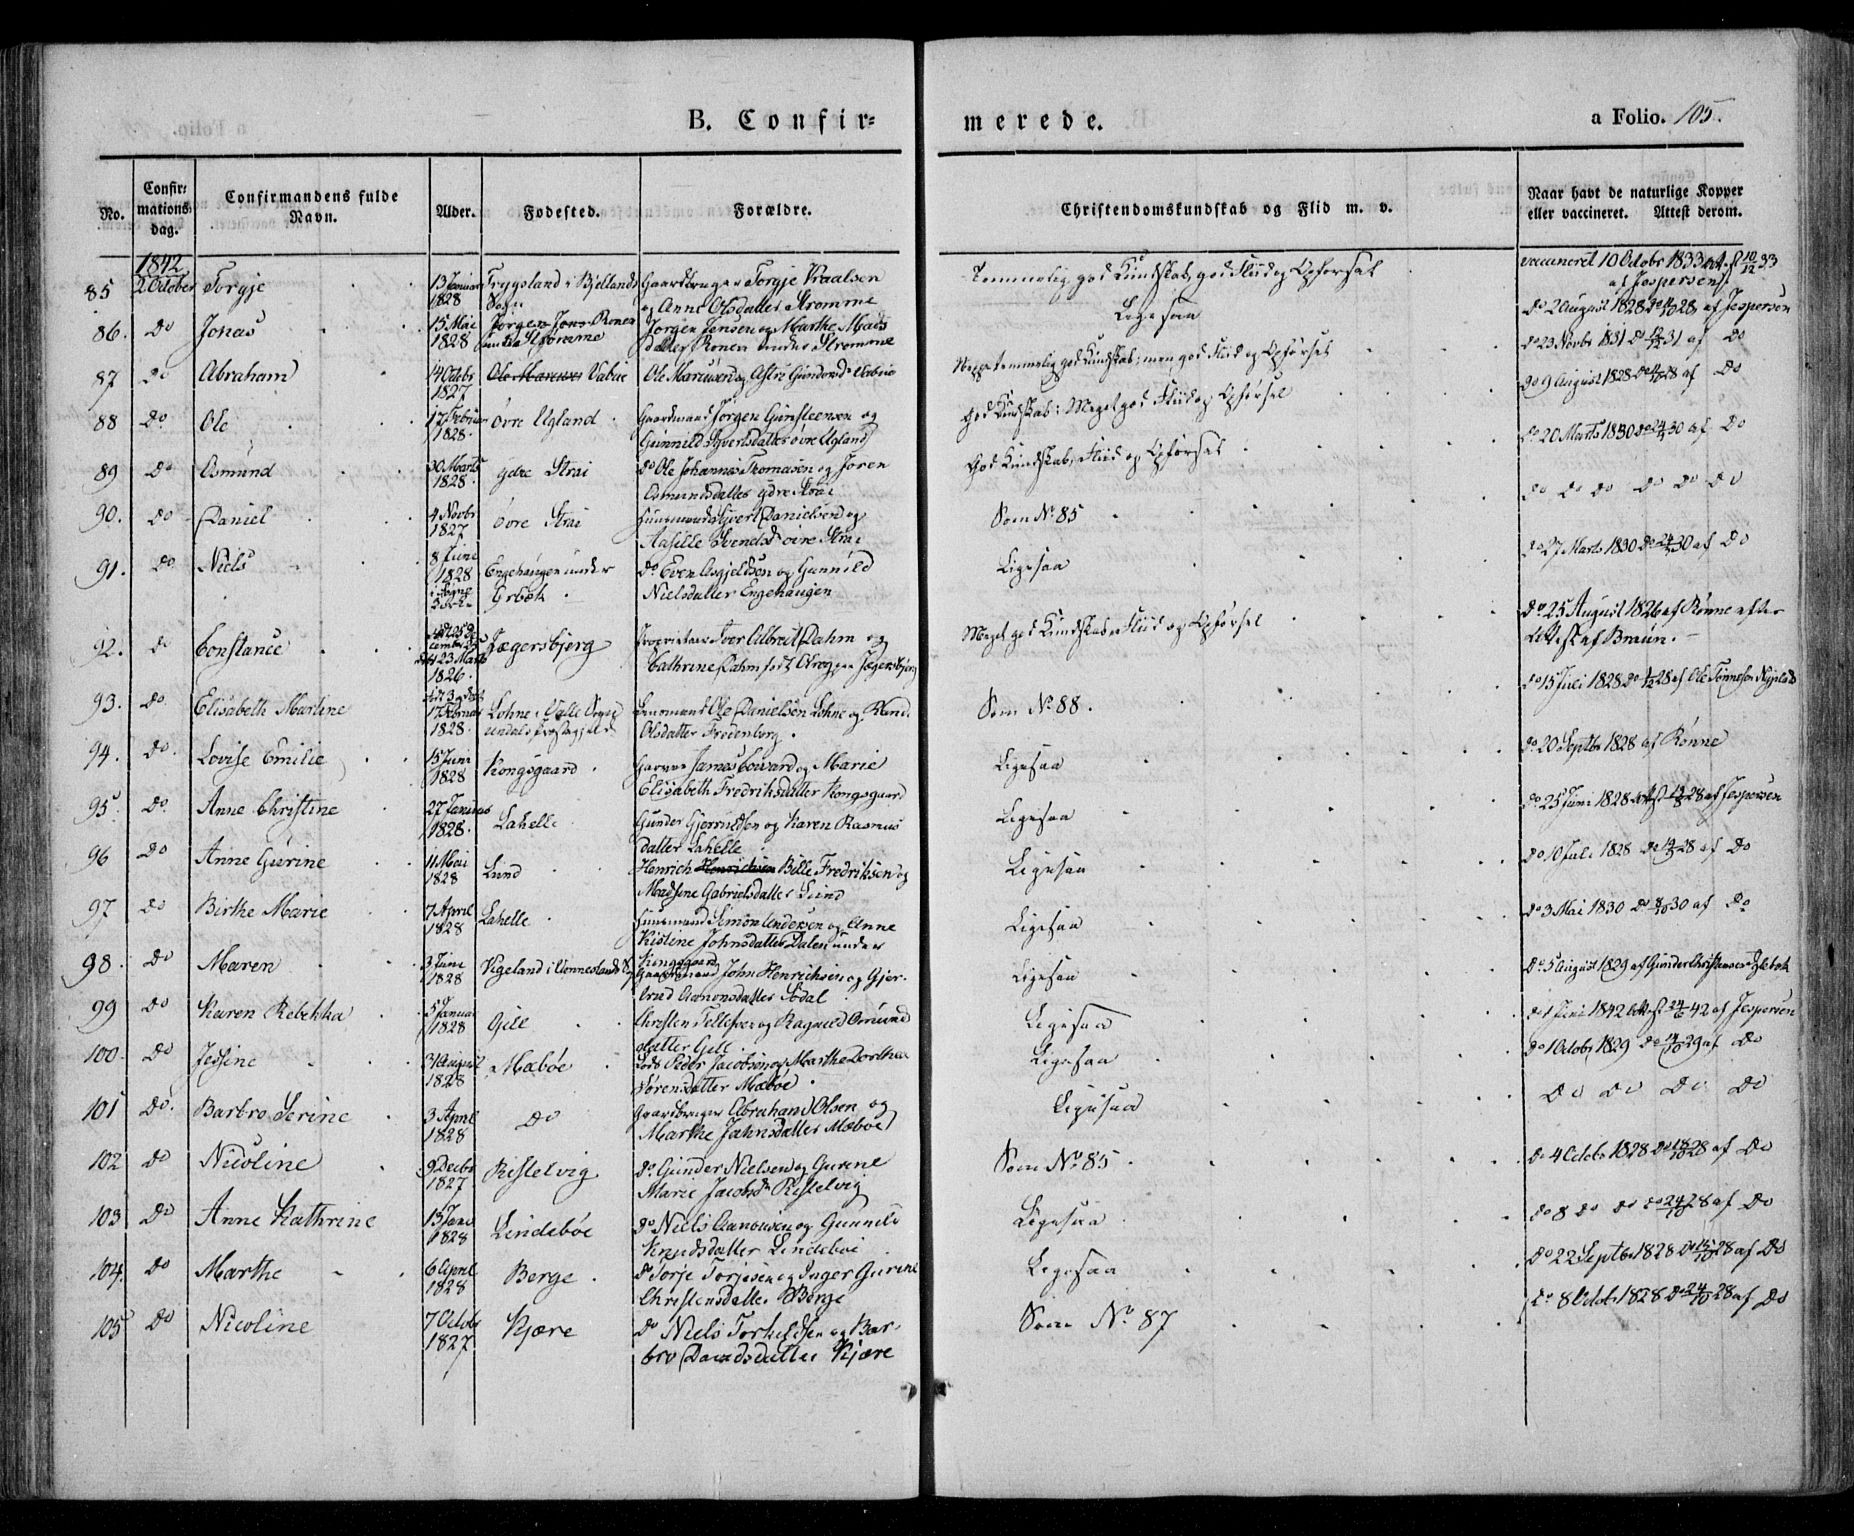 B. Confir=
merede.
a Folio. 105.
No.
Confir=
mations
dag.
Confirmandens fulde
Navn.
Alder.
Fødested.
Forældre.
Christendomskundskab og Flid m. v.
Naar havt de naturlige Kopper
eller vaccineret. Attest derom.
1842
85 2 October Torgje 13 Januar 1828 Trygsland i Bjellands Sogn Gaardbruger Torgje Vraalsen og Anne Olsdatter Strømme Temmelig god Kundskab, god Fliid og Opførsel vaccineret 10 Octobr 1833 Att. 10/12 33 af Jespersen
86. do Jonas 15 Mai 1828 under Strømme Jørgen Jensen og Marthe Madsdatter Ronen under Strømme Ligesaa do 2 August 1828 do 28 af Jespersen
87 do Abraham 14 Octobr 1827 Ole Mareusen Ole Mareusen og Astri Neppe temmelig god Kundskab; men god Fliid og Opførsel do 23 Novbr 1831 do 31 af Do
88 do Ole 17 Februar 1828. øvre Ugland Gaardmand Jørgen Gunsteensen og Gunnild Syvertsdatter øvre Ugland God Kundskab; Meget god Fliid og Opførsel do 9 August 1828 do 28 af Do
89 do Osmund 30 Marts 1828. ydre Strai Do Ole Johannes Thomasen og Joren Osmundsdatter ydre Strai God Kundskab, Fliid og Opførsel do 20 Marts 1830 do 24 30 af Do
90. do Daniel 4 Novbr 1827 øvre Strai Huusmand Syvert Danielsen og Aasille Svendsd. øvre Strai Som No. 85 do do do do do do
91. do Niels 8 Juni 1828 Engehaugen under Grbøk Do Even Asgjeldsen og Gunnild Nielsdatter Engehaugen Ligesaa do 27 Marts 1830 do 24 30 af Do
92. do Constance 23 Marts 1826. Jægersbjerg Proprietær Iver Albret Dahm og Cathrine Dahm født Jægersbjerg Meget god Kundskab, Fliid og Opførsel do 25 August 1826 af Rønne efter Attest af Bruun.
93. do Elisabeth Martine 17 1828. Lohne i Valle Sogn Undals Præstegjeld Ole Danielsen Lohne og Rand. Olsdatter Fredenborg. Som No 88. do 15 Juli 1828 do 28 af Ole Tønnesen Nyplads
94. do. Lovise Emilie 15 Juni 1828 Kongsgaard James Coward og Marie Elisabeth Fredriksdatter Kongsgaard Ligesaa do 20 Septbr 1828 af Rønne
95. do. Anne Christine 27 Januar 1828. Lahelle Gunder Gjerruldsen og Karen Rasmusdatter Lahelle Ligesaa do 25 Juni 1828 Attest 28 af Jespersen
96 do Anne Gurine 11 Mai 1828 Lund Henrich Henrichsen Bille Fredriksen og Madsine Gabrielsdatter Lund Ligesaa do 10 Juli 1828 do 28 af Do
97 do Birthe Marie 7 April 1828 Lahelle. Huusmand Simon Andersen og Anne Kistine Johnsdatter Dalen under Kongsgaard Ligesaa do 3 Mai 1830 do 30 af Do
98. do Maren 3 Juni 1828 Vigeland i Vennesland Gaardmand John Henrichsen og Gjerlrud Aanonsdatter Sødal Ligesaa Do 5 August 1829 af Gunder Christensen
99 do Karen Rebekka 5 Januar 1828 Gill Christen Tellefsen og Ragnild Osmundsdatter Gill. Ligesaa do 1 Juni 1842 Att. 24/6 42 af Jespersen
100. do Jessine 31 August 1828 Mæbøe Lods Peder Jacobsen og Marthe Dorthea Sørensdatter Mæbøe. Ligesaa do 1 Octobr 1829 do 29 af Do
101 do. Barbro Serine 3 April 1828 do Gaardbruger Abraham Olsen og Marthe Jahnsdatter Mæbøe Ligesaa Do Do Do Do
102 do Nicoline 9 Decbr 1827 Kistelvig Do Gunder Nielsen og Gurine Marie Jacobsd. Kistelvig Som No. 85. do 4 Octobr 1828 do 18/10 28 af Do
103 Do Anne Kathrine 13 1828 Lindebøe Do Niels Aanonsen og Gunnild Knudsdatter Lindebøe Ligesaa do 8 do do do 24/10 28 af Do
104. do Marthe 6 April 1828 Berge. Do Torje Torjesen og Inger Gurine Christensdatter Berge Ligesaa do 22 Septbr 1828 do 15/10 28 af Do
105 Do Nicoline 7 Octobr 1827 Kjære Do Niels Torkeldsen og Barbro Davidsdatter Kjære Som No. 87 do 8 Octobr 1828 do 24/10 28 af Do